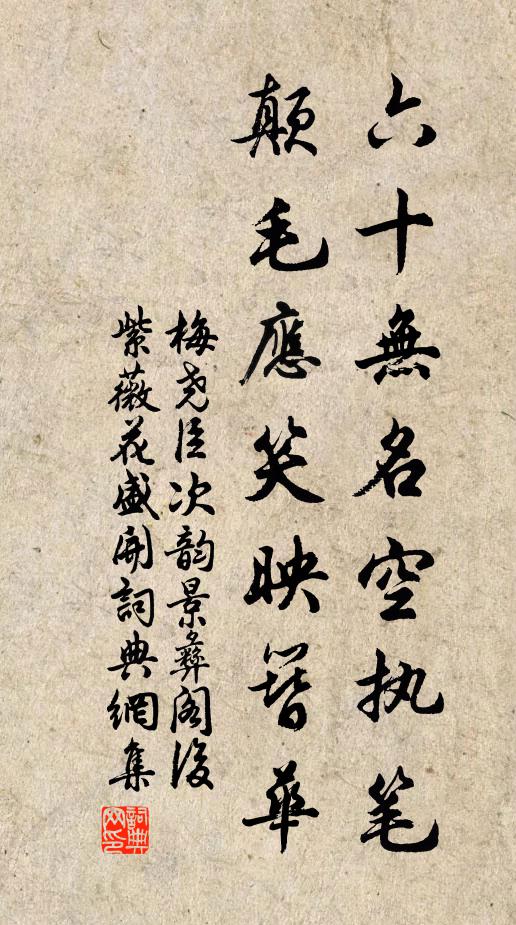 六十無名空执笔
顛毛應笑映簪華
梅尧臣次韵景彝阁後
紫薇花盛開詞典網集
詞典網印